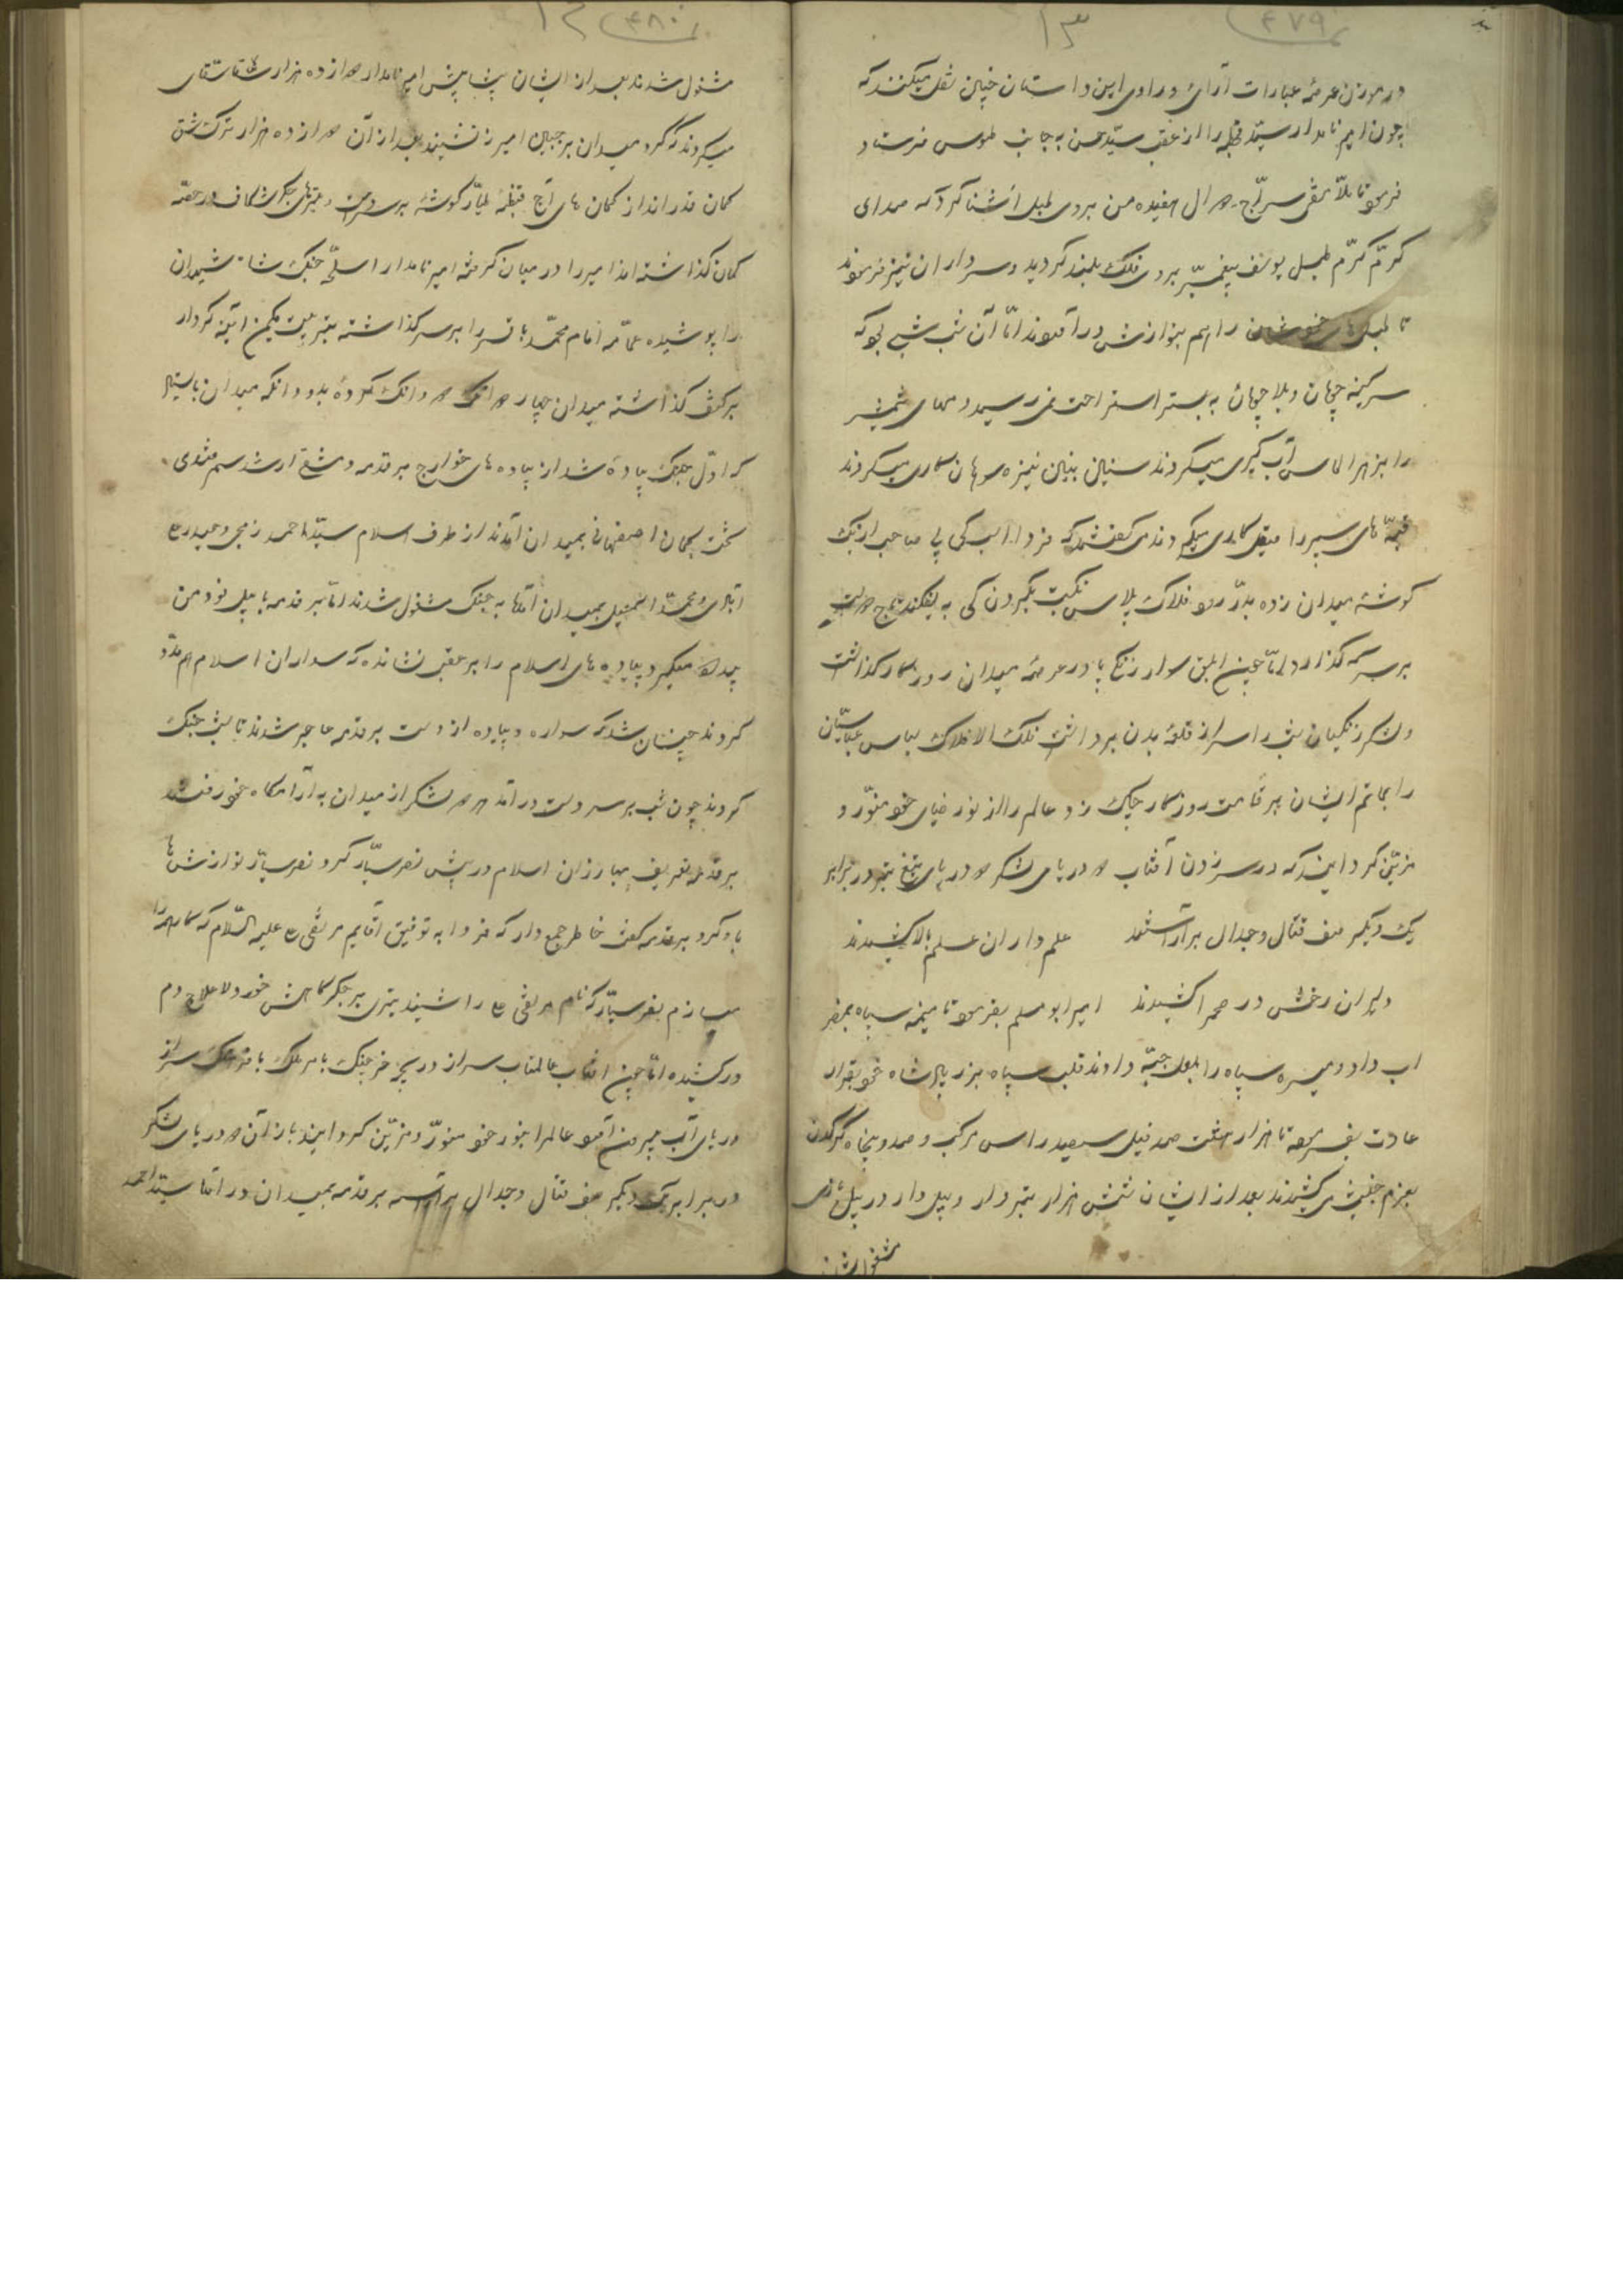 ۴۷۹
۱۳
در موزن عرصهٔ عبارات آرای و راوی این داستان چنین نقل میکنند که
چون امیر نامدار سید قحطبه را از عقب سید حسن به جانب طوس فرستاد
فرمود تا ملا تقی سراج دوال را بر روی طبل آشنا کرد که صدای
کرم کرم طبل یوسف پیغمبر بر روی فلک بلند کردید و سرداران نیز فرمودند
تا طبل های خود را هم بنوازش در آوردند اما آن شب شبی بود که
سر کینه جویان و بلا جویان به بستر استراحت نمی رسید دمهای شمشیر
را بزهر الماس آب کیری میکردند سنین بنین نیزه سوهان کاری میکردند
قبه های سپر را صیقل کاری میکردند می کفتند که فردا اسب کی بی صاحب از یک
کوشهٔ میدان زده بدر رود فلاک پلاس نکبت بکردن کی بیفکند تاج دولت
بر سر که کذارد اما چون ابلق سوار زنگی پا در عرصهٔ میدان روزگار کذاشت
و لشکر زنگیان شب را سر از قلعهٔ بدن برداشت فلک الافلاک لباس عباسیان
را بماتم ایشان بر قامت روزگار چاک زد و عالم را از نور ضیای خود منور و
مزین کرد اینکه در سر زدن آفتاب دو دریای لشکر دو دریای تیغ و تبر در برابر
یک دیکر صف قتال و جدال برآراستند علم داران علم بالا کشیدند
دلیران رخش در صحرا کشیدند امیر ابو مسلم بفرمود تا میمنه سپاه بمضر
اب داد و میسره سپاه را بابل جبه دادند قلب سپاه بزیر پای شاه خود بقرار
عادت بفرمود تا هزار هشت صد فیل سفید راس مرکب و صد و پنجاه کرکدن
بعزم جنبش کشیدند بعد از ایشان شش هزار تبردار و بیل دار در بیل بازی
مشغول شدند
۴۸۰
۱۲
مشغول شدند بعد از ایشان پیشاپیش امیر نامدار دوازده هزار سقا سقای
میکردند که کرد میدان بر جبین امیر ننشیند بعد از آن دوازده هزار ترک شق
کمان قدرانداز کمان های آج قبضهٔ طیار کوشه بر سر دست و تیرهای جکر شکاف در حقه
کمان کذاشته اند امیر را در میان کرفته امیر نامدار اسلحهٔ جنک شاه شهیدان
را پوشیده عمامه امام محمد باقر را بر سر گذاشته تبر بیست یکمن آینه کردار
بر کتف کذاشته میدان چهار دانک و دو دانک کرده بدو دانکه میدان باستاد
که اول جنک پیاده شد از پیاده های خوارج برقدمه دمشقی ارشد سمرقندی
سخت کمان اصفهانی بمیدان آمدند از طرف اسلام سید احمد زمجی و حیدر
و محمد اسمعیل بمیدان آمدند به جنک مشغول شدند اما برقدمه با بیل نود من
بیداد میکرد پیاده های اسلام را بر عقب نشانده که سواران اسلام هم مدد
کردند چنان شد که سواره و پیاده از دست برقدمه عاجز شدند تا شب جنک
کردند چون شب بر سر دست درآمد هر دو لشکر از میدان به آرامگاه خود رفتند
برقدمه تعریف مبارزان اسلام در پیش نصر سیار کرد نصر سیار نوازش ها
باو کرد برقدمه کفت خاطر جمع دار که فردا به توفیق آقایم مرتضی علیه السلام که کار همه را
میسازم نصر سیار که نام مرتضی را شنید تیری بر جکر کاهش خورد لا علاج دم
در کشیده اما چون آفتاب عالمتاب سر از دریچهٔ خرچنک با هر ملک با فرهنک سر از
دریای آب بیرون آمد عالم را بنور خود منور و مزین کرد اینکه باز آن دو دریای لشکر
در برابر یک دیکر صف قتال و جدال برآراسته برقدمه بمیدان در آمد سید احمد